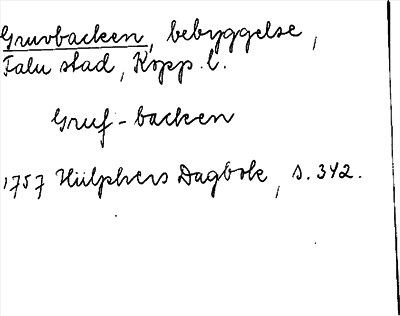 Gruvbacken, bebyggelse,
Falu stad, Kopp. l.
Gruf-backen
1757 Hülphers Dagbok, s. 342.